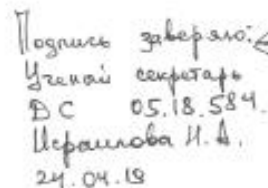 Подпись заверяю:
Ученый секретарь
ДС 05.18.584.
Исраилова Н. А.
24.04.19